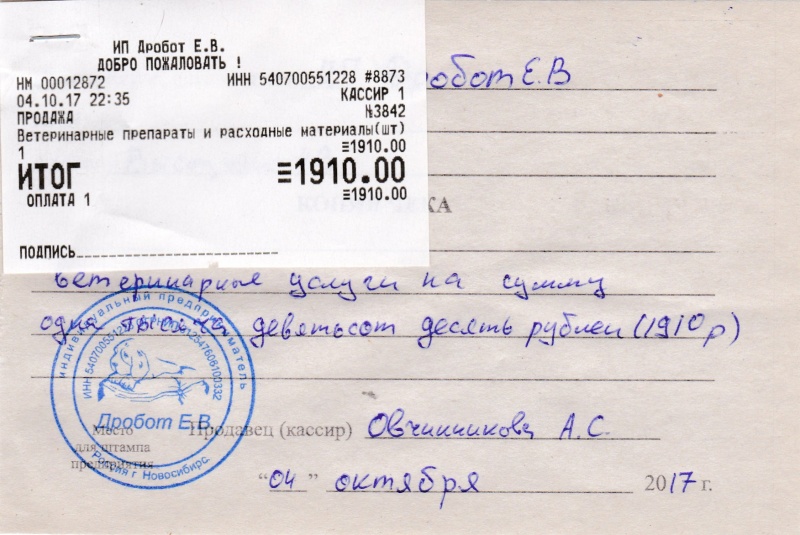 ИП Дробот Е.В.
ДОБРО ПОЖАЛОВАТЬ !
НМ 00012872 ИНН 540700551228 #8873
04.10.17 22:35 КАССИР 1
ПРОДАЖА №3842
Ветеринарные препараты и расходные материалы(шт)
1 ≡1910.00
ИТОГ ≡1910.00
ОПЛАТА 1 ≡1910.00
ПОДПИСЬ
Дробот Е.В
КА
ветеринарные услуги на сумму
одна тысяча девятьсот десять рублей (1910 р)
индивидуальный предприниматель
ИНН 540700551228
Дробот Е.В.
Россия г. Новосибирс
Место
для штампа
предприятия
Продавец (кассир) Овчинникова А.С.
"04" октября 2017 г.